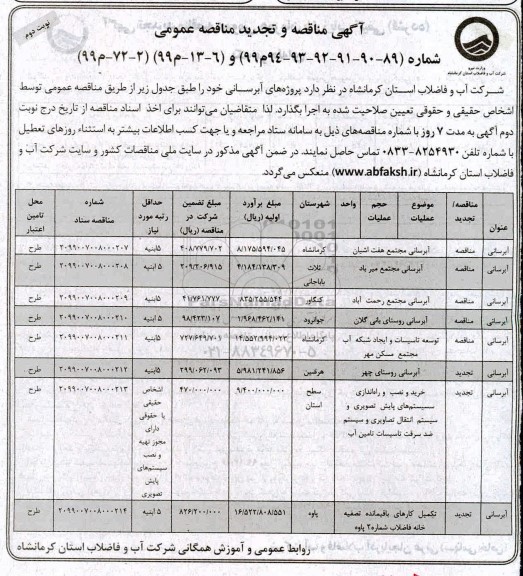 آگهی مناقصه و تجدید مناقصه عمومی
نوبت دوم
شماره (۸۹-۹۰-۹۱-۹۲-۹۳-۹۴م۹۹) و (۶-۱۳-م۹۹) (۲-۷۲-م۹۹)
وزارت نیرو
شرکت آب و فاضلاب استان کرمانشاه
شرکت آب و فاضلاب استان کرمانشاه در نظر دارد پروژه‌های آبرسانی خود را طبق جدول زیر از طریق مناقصه عمومی توسط
اشخاص حقیقی و حقوقی تعیین صلاحیت شده به اجرا بگذارد. لذا متقاضیان می‌توانند برای اخذ اسناد مناقصه از تاریخ درج نوبت
دوم آگهی به مدت ۷ روز با شماره مناقصه‌های ذیل به سامانه ستاد مراجعه و یا جهت کسب اطلاعات بیشتر به استثناء روزهای تعطیل
با شماره تلفن ۸۲۵۴۹۳۰-۰۸۳۳ تماس حاصل نمایند. در ضمن آگهی مذکور در سایت ملی مناقصات کشور و سایت شرکت آب و
فاضلاب استان کرمانشاه (www.abfaksh.ir) منعکس می‌گردد.
عنوان مناقصه/تجدید موضوع عملیات حجم عملیات واحد شهرستان مبلغ برآورد اولیه (ریال) مبلغ تضمین شرکت در مناقصه (ریال) حداقل رتبه مورد نیاز شماره مناقصه ستاد محل تامین اعتبار
آبرسانی مناقصه آبرسانی مجتمع هفت آشیان کرمانشاه ۸/۱۷۵/۵۹۴/۰۴۵ ۴۰۸/۷۷۹/۷۰۲ ۵ ابنیه ۲۰۹۹۰۰۷۰۰۸۰۰۰۲۰۷ طرح
آبرسانی مناقصه آبرسانی مجتمع میر یاد ثلاث باباجانی ۴/۱۸۴/۱۳۸/۳۰۹ ۲۰۹/۲۰۶/۹۱۵ ۵ ابنیه ۲۰۹۹۰۰۷۰۰۸۰۰۰۲۰۸ طرح
آبرسانی مناقصه آبرسانی مجتمع رحمت آباد کنگاور ۸۳۵/۲۵۵/۵۴۴ ۴۱/۷۶۱/۷۷۷ ۵ ابنیه ۲۰۹۹۰۰۷۰۰۸۰۰۰۲۰۹ طرح
آبرسانی مناقصه آبرسانی روستای بانی گلان جوانرود ۱/۹۶۸/۴۶۲/۱۴۱ ۹۸/۴۲۳/۱۰۷ ۵ ابنیه ۲۰۹۹۰۰۷۰۰۸۰۰۰۲۱۰ طرح
آبرسانی مناقصه توسعه تاسیسات و ایجاد شبکه آب مجتمع مسکن مهر کرمانشاه ۱۴/۵۵۲/۹۹۴/۰۲۳ ۷۲۷/۶۴۹/۷۰۱ ۵ ابنیه ۲۰۹۹۰۰۷۰۰۸۰۰۰۲۱۱ طرح
آبرسانی تجدید آبرسانی روستای چهر هرسین ۵/۹۸۱/۲۴۱/۸۵۶ ۲۹۹/۰۶۲/۰۹۳ ۵ ابنیه ۲۰۹۹۰۰۷۰۰۸۰۰۰۲۱۲ طرح
آبرسانی تجدید خرید و نصب و راه‌اندازی سیستم‌های پایش تصویری و سیستم انتقال تصاویری و سیستم ضد سرقت تاسیسات تامین آب سطح استان ۹/۴۰۰/۰۰۰/۰۰۰ ۴۷۰/۰۰۰/۰۰۰ اشخاص حقیقی یا حقوقی دارای مجوز تهیه و نصب سیستم‌های پایش تصویری ۲۰۹۹۰۰۷۰۰۸۰۰۰۲۱۳ طرح
آبرسانی تجدید تکمیل کارهای باقیمانده تصفیه خانه فاضلاب شماره۲ پاوه پاوه ۱۶/۵۲۲/۸۰۸/۵۵۱ ۸۲۶/۲۰۰/۰۰۰ ۵ ابنیه ۲۰۹۹۰۰۷۰۰۸۰۰۰۲۱۴ طرح
روابط عمومی و آموزش همگانی شرکت آب و فاضلاب استان کرمانشاه